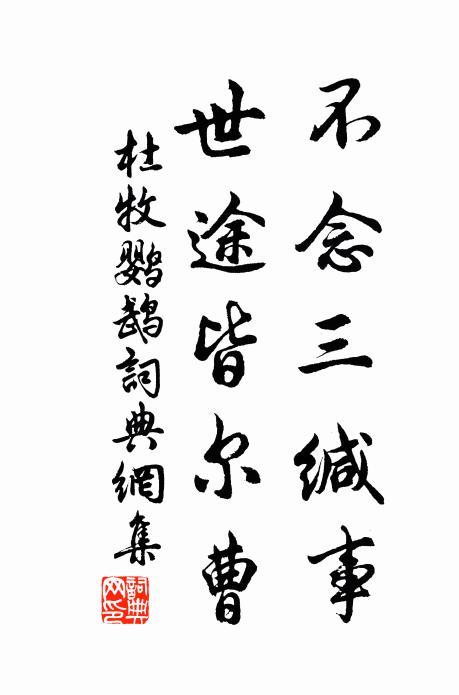 不念三缄事
世途皆尔曹
杜牧鹦鹉詞典網集
詞典网印